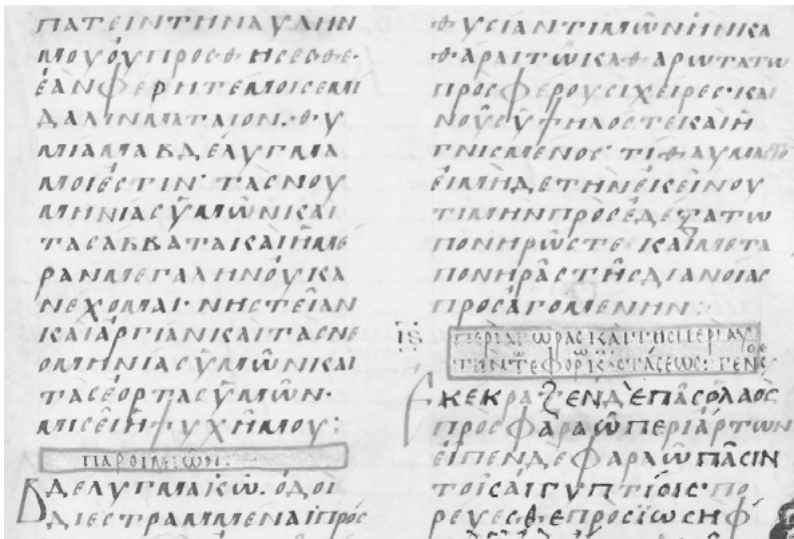 ΠΑΤΕΙΝΤΗΝΑΥΛΗΝ
ΜΟΥΟΥΠΡΟΣΘΗΣΕΣΘΕ·
ΕΑΝΦΕΡΗΤΕΜΟΙΣΕΜΙ
ΔΑΛΙΝΜΑΤΑΙΟΝ·ΘΥ
ΜΙΑΜΑΒΔΕΛΥΓΜΑ
ΜΟΙΕΣΤΙΝ·ΤΑΣΝΟΥ
ΜΗΝΙΑΣΥΜΩΝΚΑΙ
ΤΑΣΑΒΒΑΤΑΚΑΙΗΜΕ
ΡΑΝΜΕΓΑΛΗΝΟΥΚΑ
ΝΕΧΟΜΑΙ·ΝΗΣΤΕΙΑΝ
ΚΑΙΑΡΓΙΑΝΚΑΙΤΑΣΝΕ
ΟΜΗΝΙΑΣΥΜΩΝΚΑΙ
ΤΑΣΕΟΡΤΑΣΥΜΩΝ·
ΜΙΣΕΙΗΨΥΧΗΜΟΥ:
ΠΑΡΟΙΜΙΩΝ:
ΒΔΕΛΥΓΜΑΚΩ·ΟΔΟΙ
ΔΙΕΣΤΡΑΜΜΕΝΑΙΠΡΟΣ
ΘΥΣΙΑΝΤΙΜΩΝΗΝΙΚΑ
ΘΑΡΑΙΤΩΚΑΘΑΡΩΤΑΤΩ
ΠΡΟΣΦΕΡΟΥΣΙΧΕΙΡΕΣ·ΚΑΙ
ΝΟΥΣΥΨΗΛΟΣΤΕΚΑΙΗ
ΓΝΙΣΜΕΝΟΣ·ΤΙΘΑΥΜΑΣΤΟ
ΕΙΜΗΔΕΤΗΝΕΚΕΙΝΟΥ
ΤΙΜΗΝΠΡΟΣΕΔΕΞΑΤΩ
ΠΟΝΗΡΩΣΤΕ·ΚΑΙΜΕΤΑ
ΠΟΝΗΡΑΣΤΗΣΔΙΑΝΟΙΑΣ
ΠΡΟΣΑΓΟΜΕΝΗΝ:
ΕΚΕΚΡΑΞΕΝΔΕΠΑΣΟΛΑΟΣ
ΠΡΟΣΦΑΡΑΩΠΕΡΙΑΡΤΩΝ
ΕΙΠΕΝΔΕΦΑΡΑΩΠΑΣΙΝ
ΤΟΙΣΑΙΓΥΠΤΙΟΙΣ·ΠΟ
ΡΕΥΕΣΘΕΠΡΟΣΙΩΣΗΦ